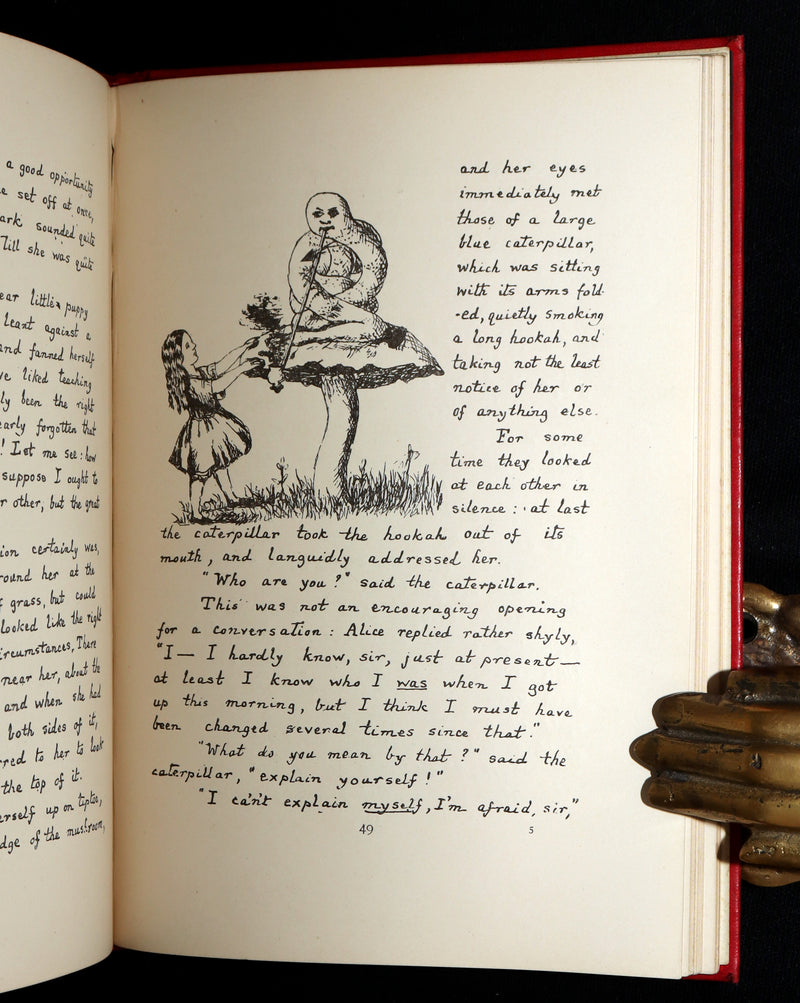 a good opportunity
set off at once,
sounded quite
Till she was quite
little puppy
leant against a
and fanned herself
liked teaching
been the right
forgotten that
! Let me see: how
suppose I ought to
other, but the great
certainly was,
round her at the
grass, but could
looked like the right
circumstances, There
near her, about the
and when she had
both sides of it,
to her to look
the top of it.
up on tiptoe,
of the mushroom,
and her eyes
immediately met
those of a large
blue caterpillar,
which was sitting
with its arms fold-
-ed, quietly smoking
a long hookah, and
taking not the least
notice of her or
of anything else.
For some
time they looked
at each other in
silence: at last
the caterpillar took the hookah out of its
mouth, and languidly addressed her.
"Who are you?" said the caterpillar.
This was not an encouraging opening
for a conversation: Alice replied rather shyly,
"I— I hardly know, sir, just at present—
at least I know who I was when I got
up this morning, but I think I must have
been changed several times since that."
"What do you mean by that?" said the
caterpillar, "explain yourself!"
"I can't explain myself, I'm afraid, sir,"
49 5